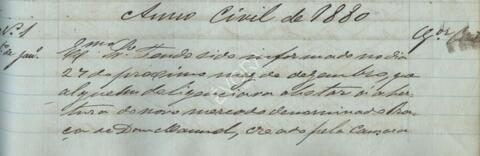 Anno Civil de 1880
Nº 1
Illmo Sr. Tendo sido informado no dia
27 do proximo mez de dezembro, que
alguem diligenciava obstar á aber-
tura do novo mercado denominado Pra-
ça de Dom Manuel, creado pela Camara